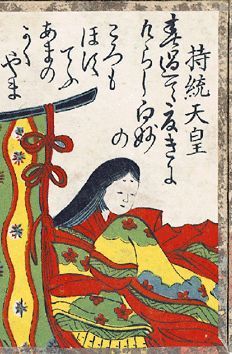 持統天皇
春過て夏きに
けらし白妙
の
ころも
ほす
てふ
あまの
かく
やま